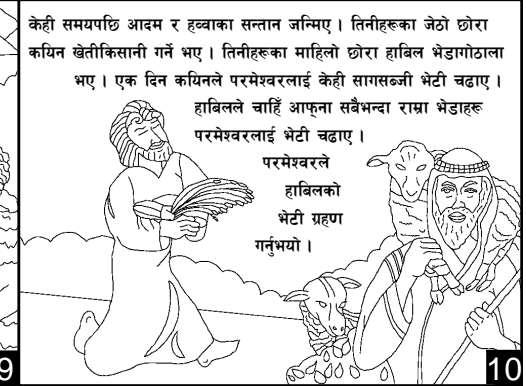 केही समयपछि आदम र हव्वाका सन्तान जन्मिए । तिनीहरूका जेठो छोरा
कयिन खेतीकिसानी गर्ने भए । तिनीहरूका माहिलो छोरा हाबिल भेडागोठाला
भए । एक दिन कयिनले परमेश्वरलाई केही सागसब्जी भेटी चढाए ।
हाबिलले चाहिँ आफ्ना सबैभन्दा राम्रा भेडाहरू
परमेश्वरलाई भेटी चढाए ।
परमेश्वरले
हाबिलको
भेटी ग्रहण
गर्नुभयो ।
9
10